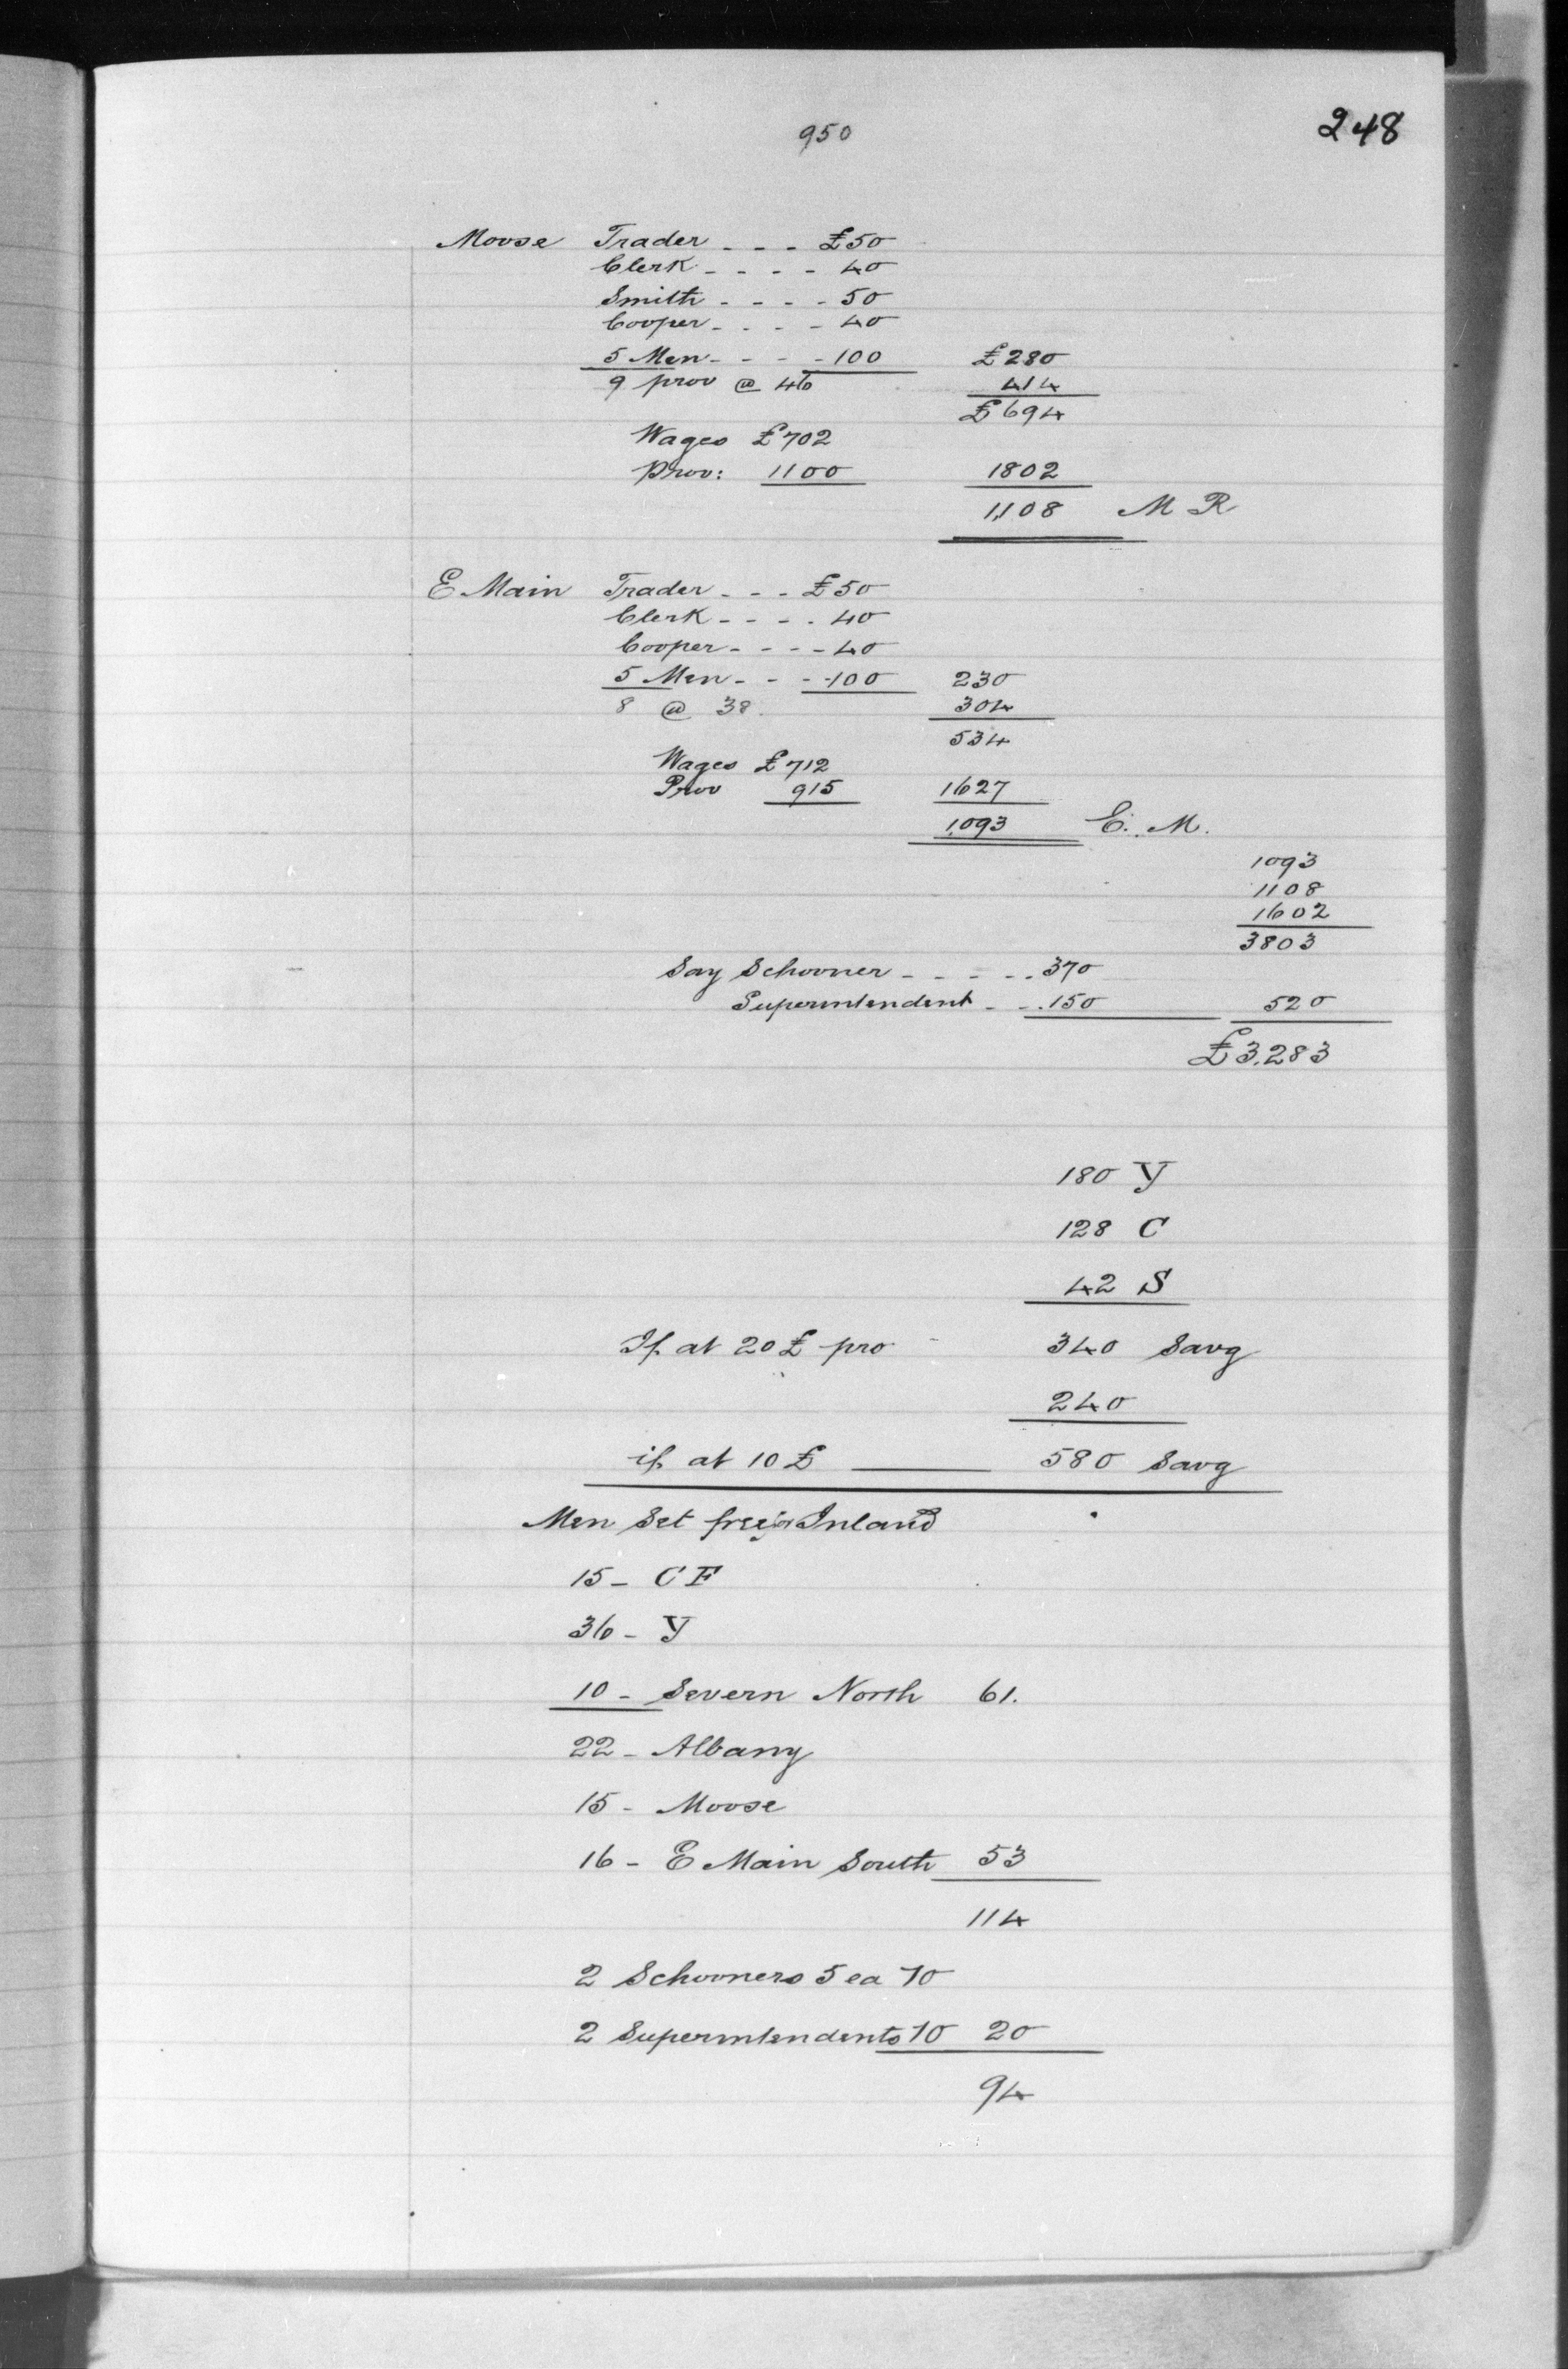 950
248
Moose Trader - - - £50
Clerk - - - - 40
Smith - - - - 50
Cooper - - - - 40
5 Men - - - - 100 £280
9 prov @ 46 414
£694
Wages £702
Prov: 1100 1802
1,108 M R
E Main Trader - - - £50
Clerk - - - - 40
Cooper - - - - 40
5 Men - - - 100 230
8 @ 38. 304
534
Wages £712
Prov 915 1627
1,093 E. M.
1093
1108
1602
3803
Say Schooner - - - - - 370
Superintendent - - 150 520
£3.283
180 Y
128 C
42 S
If at 20£ pro 340 Savg
240
if at 10£ —— 580 Savg
Men Set free Inland
15 - C F
36 - Y
10 - Severn North 61.
22 - Albany
15 - Moose
16 - E Main South 53
114
2 Schooners 5 ea 10
2 Superintendents 10 20
94